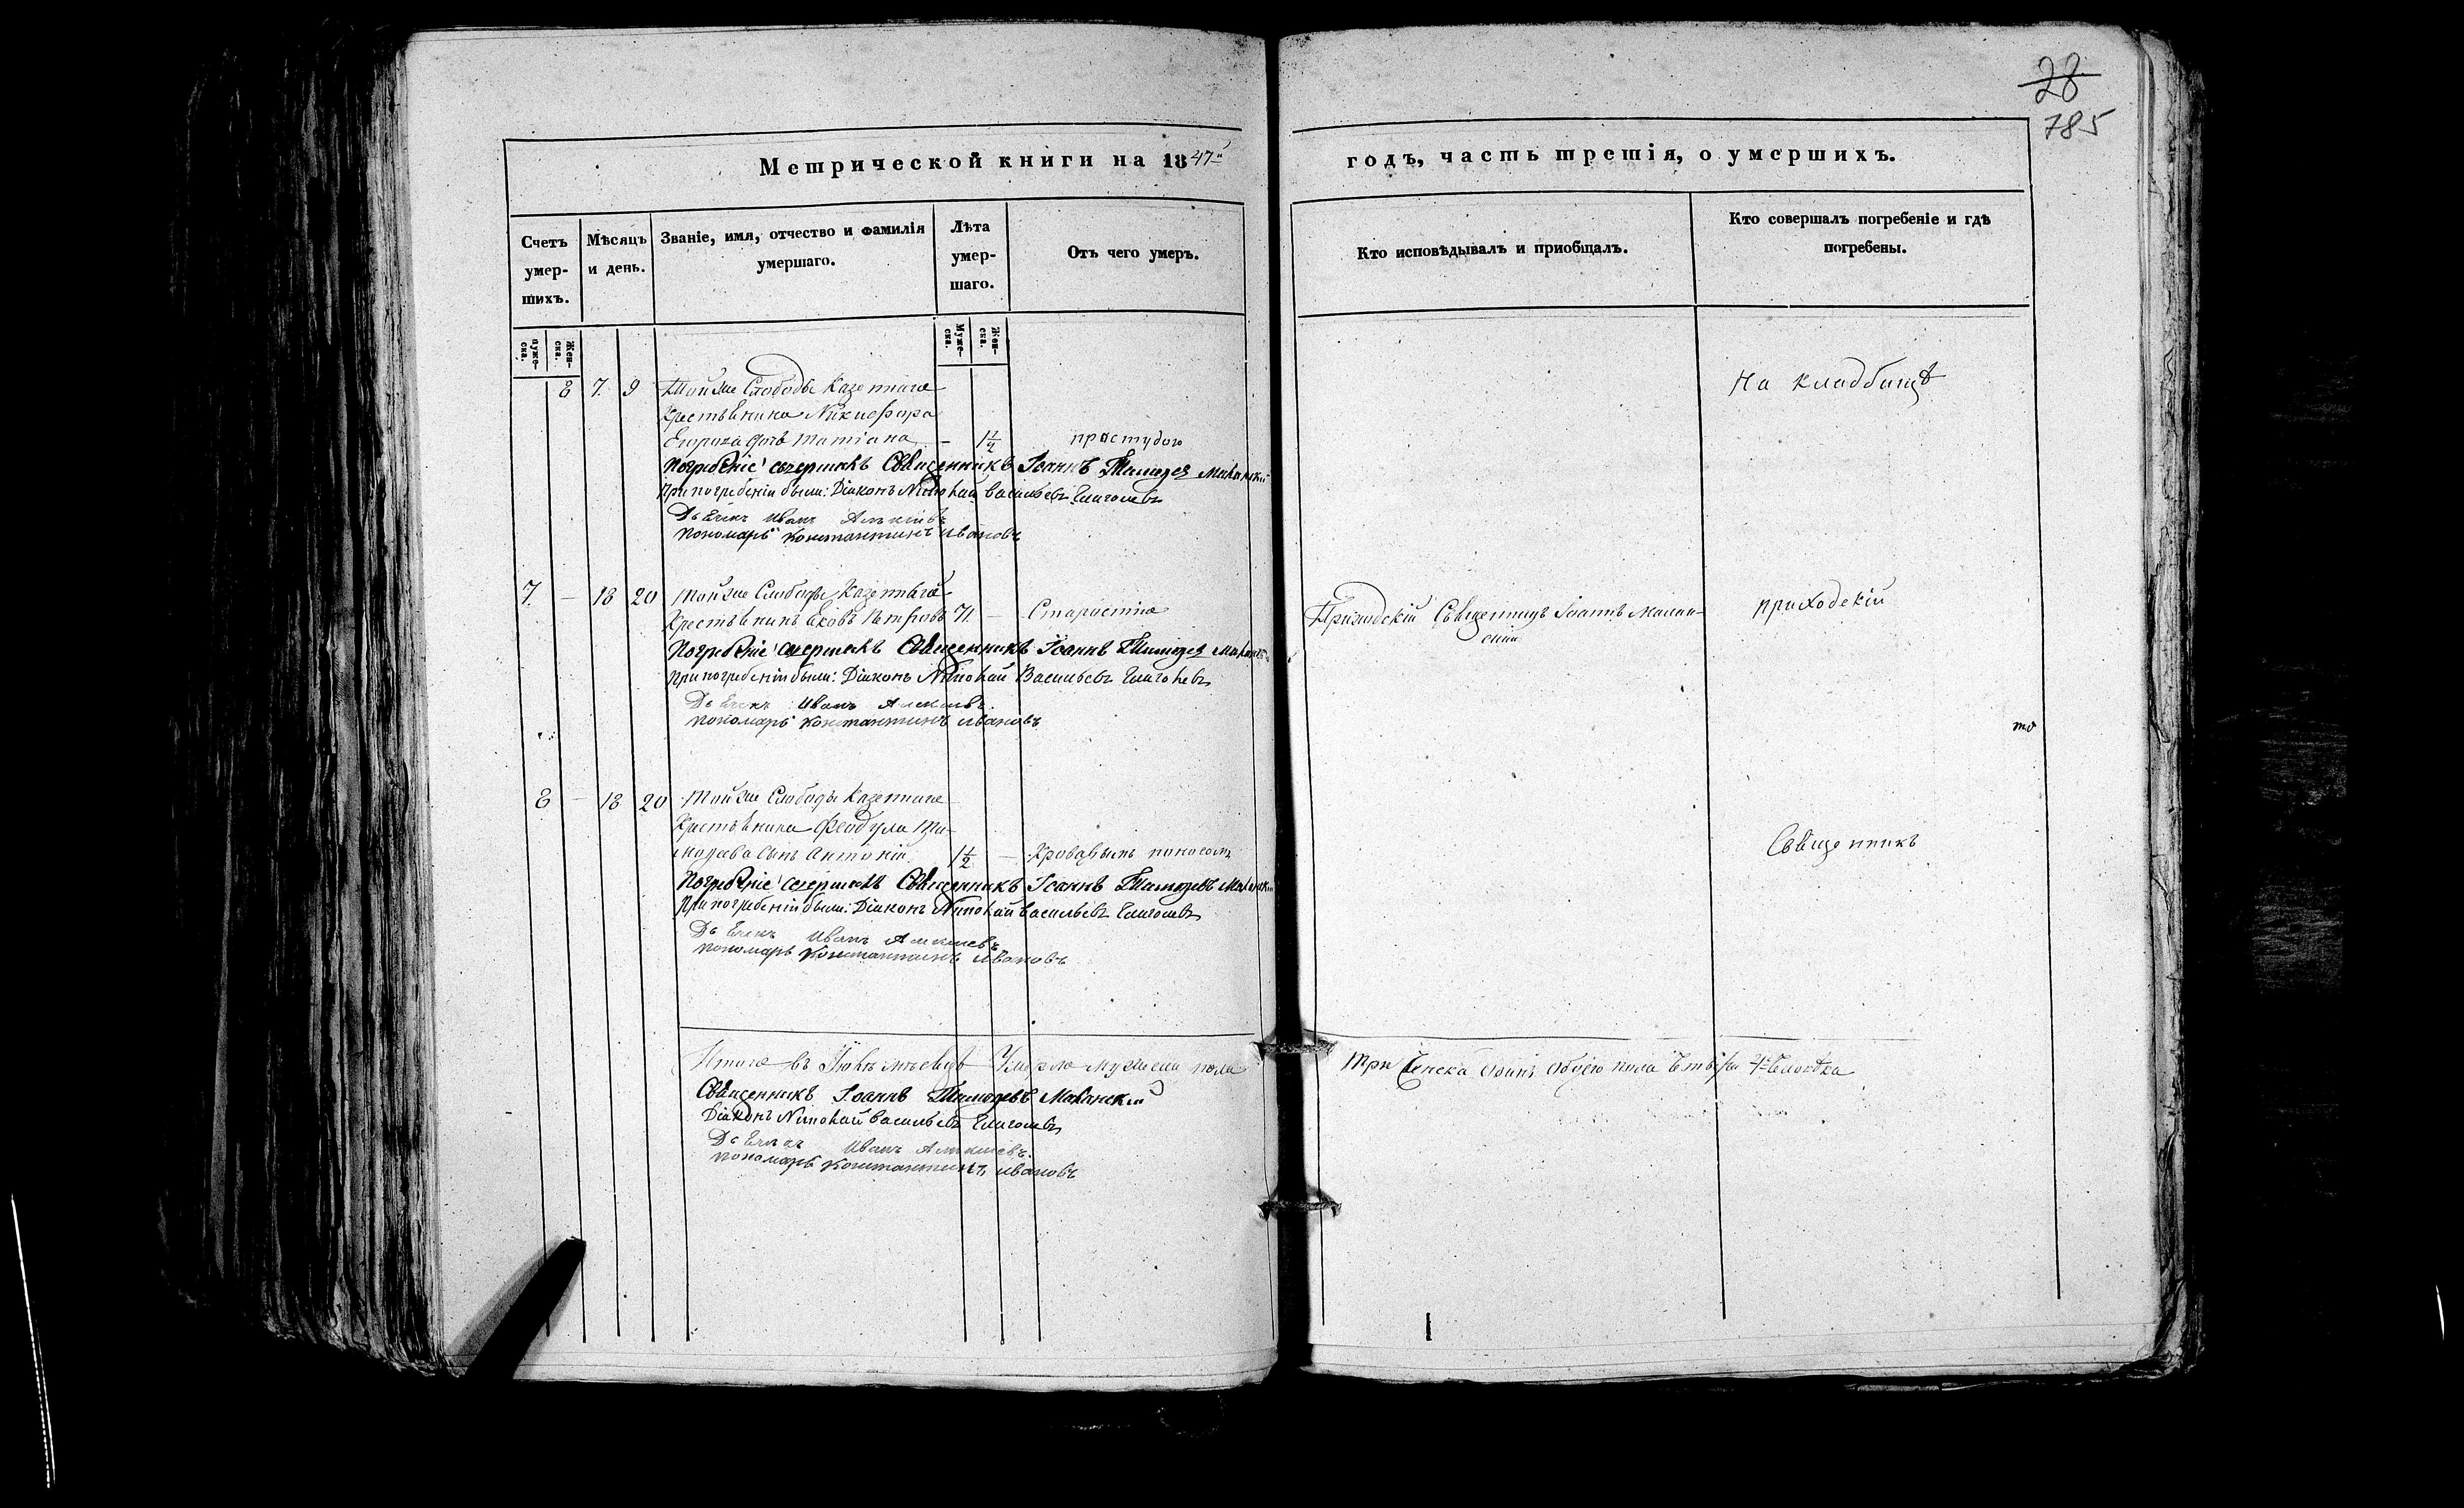 28
785
Метрической книги на 1847й
годъ, часть третія, о умершихъ.
Счетъ умер-шихъ.
Мѣсяцъ и день.
Званіе, имя, отчество и фамилія умершаго.
Лѣта умер-шаго.
Отъ чего умеръ.
Кто исповѣдывалъ и приобщалъ.
Кто совершалъ погребеніе и гдѣ погребены.
муже-ска.
Жен-ска.
Муже-ска.
Жен-ска.
8 7. 9 Той же Слободы Казеннаго
На кладбищѣ
Крестьянина Никифора
Егорова дочь Татіана — 1 1/4 простудою
Погребеніе совершалъ Священникъ Іоаннъ
При погребеніи были: Діаконъ Николай Васильевъ
Дьячекъ Иванъ
пономарь Константинъ Ивановъ
7. — 18 20 Той же Слободы Казенный
Крестьянинъ Петровъ 71. — Старостію
Приходскій Священникъ Іоаннъ
приходскій
Погребеніе совершалъ Священникъ Іоаннъ
При погребеніи были: Діаконъ Николай Васильевъ
Дьячекъ Иванъ
пономарь Константинъ Ивановъ
то
8 — 18 20 Той же Слободы Казеннаго
Крестьянина Феодула Ти-
Священникъ
сынъ Антоній 1 1/2 — Кровавымъ поносомъ
Погребеніе совершалъ Священникъ Іоаннъ
При погребеніи были: Діаконъ Николай Васильевъ
Дьячекъ Иванъ
пономарь Константинъ Ивановъ
Итого въ мѣсяцѣ Умерло мужеска пола
три женска одинъ обоего пола 4 человѣка
Священникъ Іоаннъ
Діаконъ Николай Васильевъ
Дьячекъ Иванъ
пономарь Константинъ Ивановъ